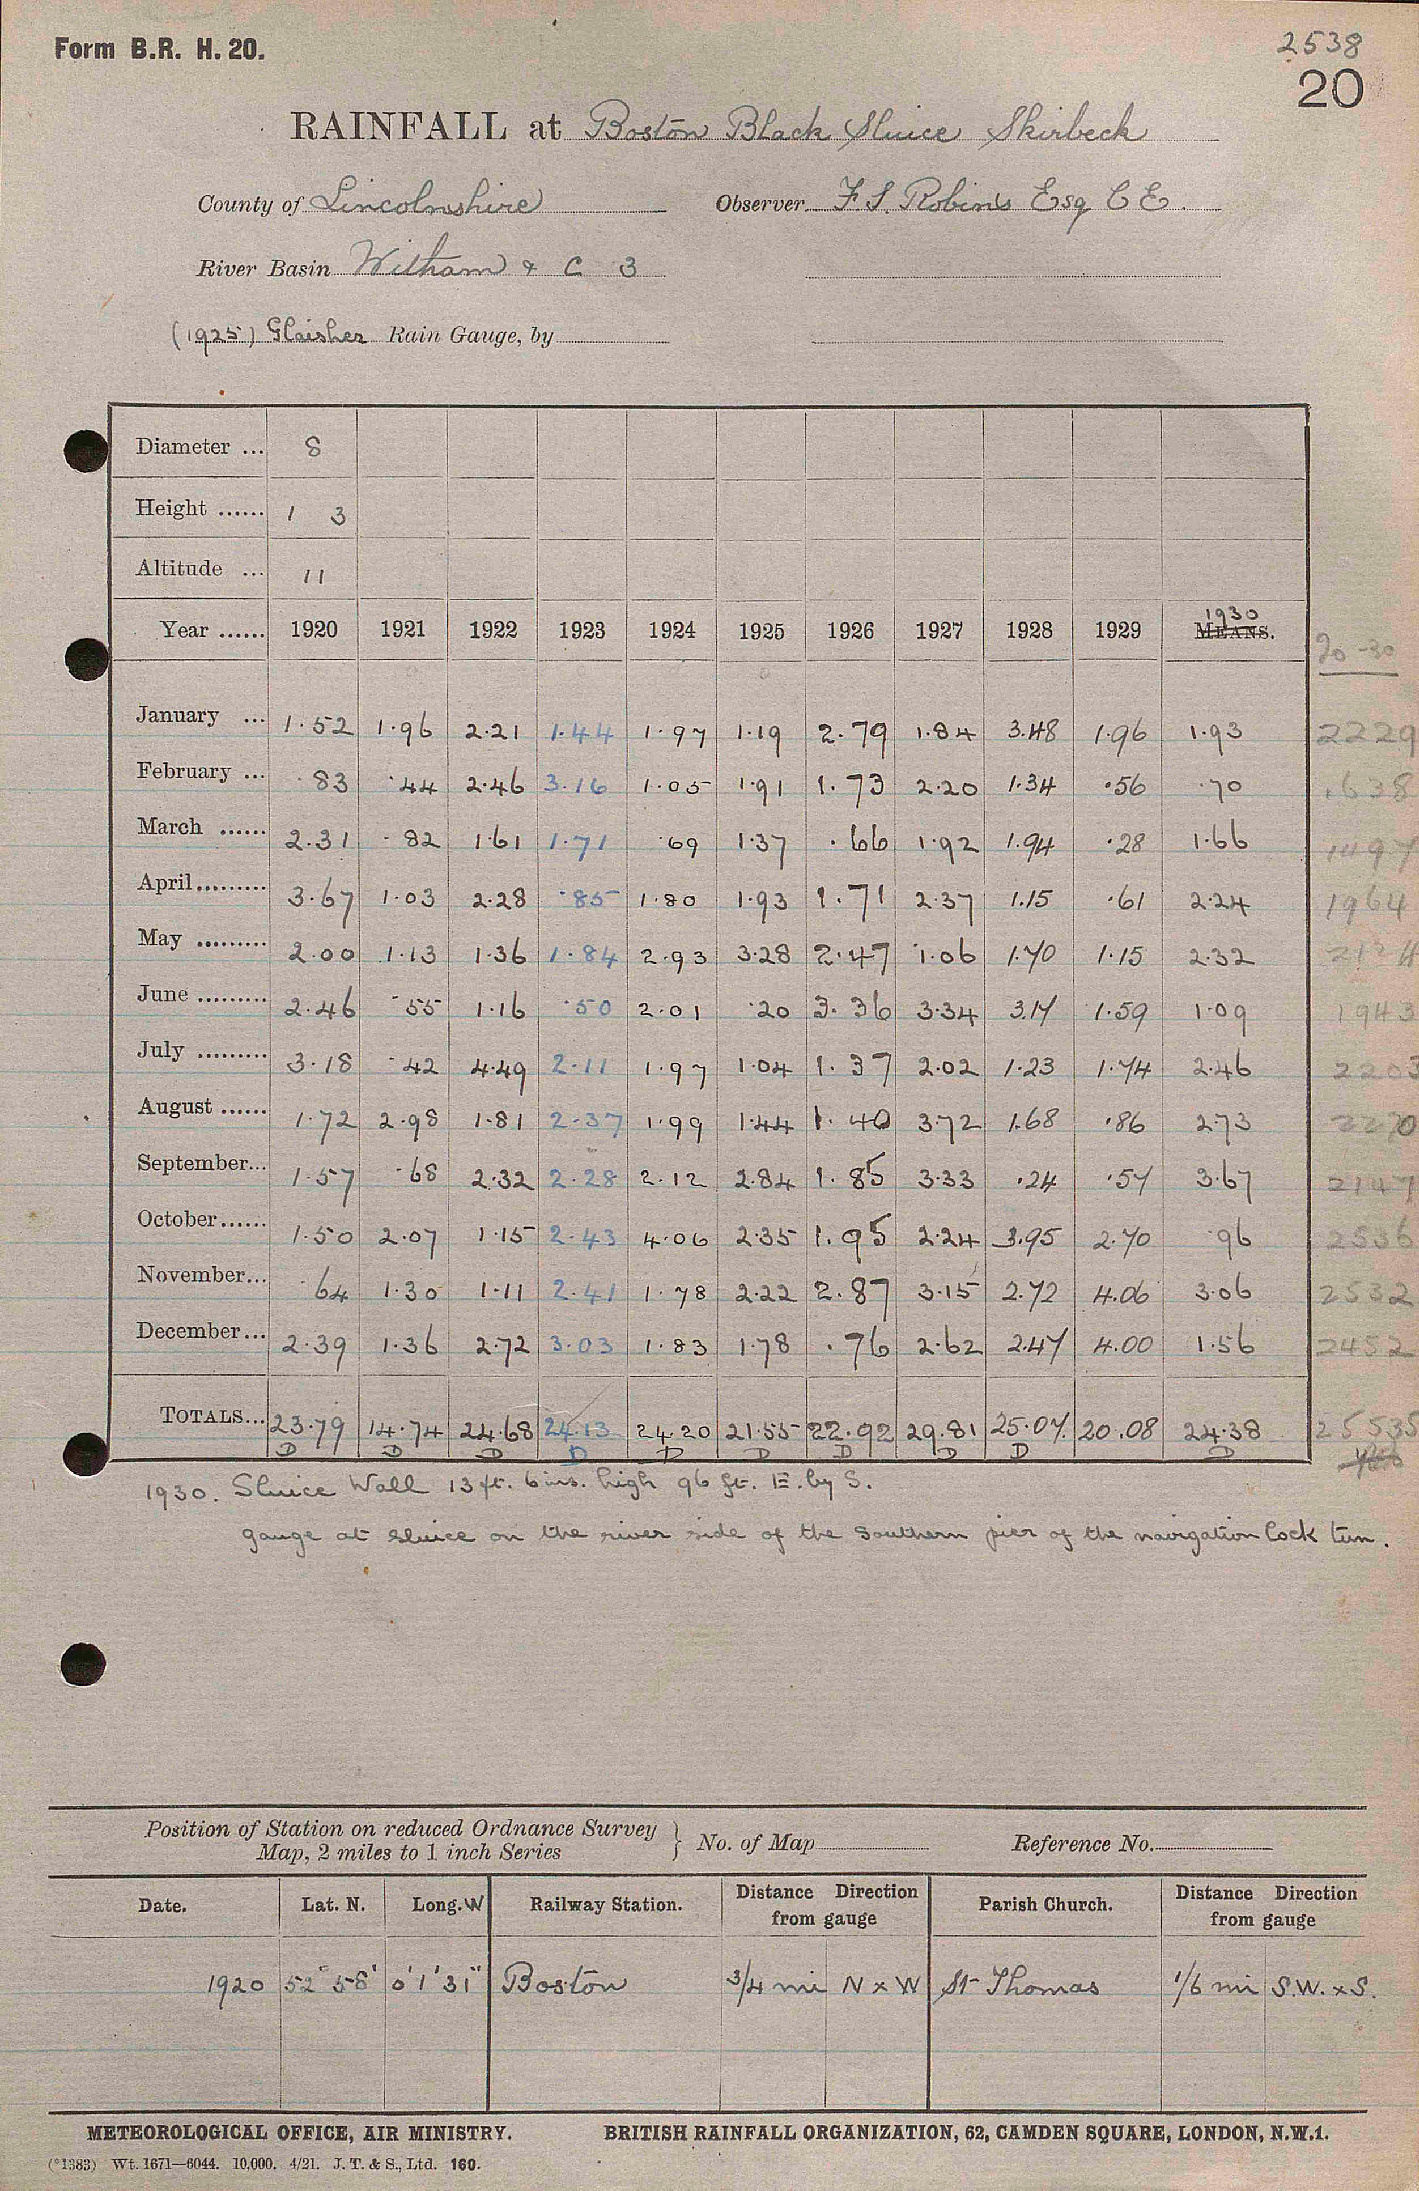 Form B.R. H. 20.
2538
20
RAINFALL at Boston Black Sluice Skirbeck
County of Lincolnshire Observer F. S. Robins Esq C E.
River Basin Witham & C 3
(1925) Glaisher Rain Gauge, by
Diameter ... 8
Height ...... 1 3
Altitude ... 11
Year ...... 1920 1921 1922 1923 1924 1925 1926 1927 1928 1929 1930 MEANS. 20-30
January ... 1.52 1.96 2.21 1.44 1.97 1.19 2.79 1.84 3.48 1.96 1.93 2229
February ... .83 .44 2.46 3.16 1.05 1.91 1.73 2.20 1.34 .56 .70 1638
March ...... 2.31 .82 1.61 1.71 .69 1.37 .66 1.92 1.94 .28 1.66 1497
April......... 3.67 1.03 2.28 .85 1.80 1.93 1.71 2.37 1.15 .61 2.24 1964
May ......... 2.00 1.13 1.36 1.84 2.93 3.28 2.47 1.06 1.70 1.15 2.32 2124
June ......... 2.46 .55 1.16 .50 2.01 .20 3.36 3.34 3.17 1.59 1.09 1943
July ......... 3.18 .42 4.49 2.11 1.97 1.04 1.37 2.02 1.23 1.74 2.46 2203
August ...... 1.72 2.98 1.81 2.37 1.99 1.44 1.40 3.72 1.68 .86 2.73 2270
September... 1.57 .68 2.32 2.28 2.12 2.84 1.85 3.33 .24 .57 3.67 2147
October...... 1.50 2.07 1.15 2.43 4.06 2.35 1.95 2.24 3.95 2.70 .96 2536
November... .64 1.30 1.11 2.41 1.78 2.22 2.87 3.15 2.72 4.06 3.06 2532
December... 2.39 1.36 2.72 3.03 1.83 1.78 .76 2.62 2.47 4.00 1.56 2452
TOTALS... 23.79 14.74 24.68 24.13 24.20 21.55 22.92 29.81 25.07. 20.08 24.38 25535
D D D D D D D D D D
1930. Sluice Wall 13 ft. 6 ins. high 96 ft. E. by S.
gauge at sluice on the river side of the southern pier of the navigation lock
Position of Station on reduced Ordnance Survey
Map, 2 miles to 1 inch Series } No. of Map Reference No.
Date. Lat. N. Long. W Railway Station. Distance Direction from gauge Parish Church. Distance Direction from gauge
1920 52° 58' 0° 1' 31" Boston 3/4 mi N x W St Thomas 1/6 mi S.W. x S.
METEOROLOGICAL OFFICE, AIR MINISTRY. BRITISH RAINFALL ORGANIZATION, 62, CAMDEN SQUARE, LONDON, N.W.1.
(*1383) Wt. 1671—6044. 10,000. 4/21. J. T. & S., Ltd. 160.